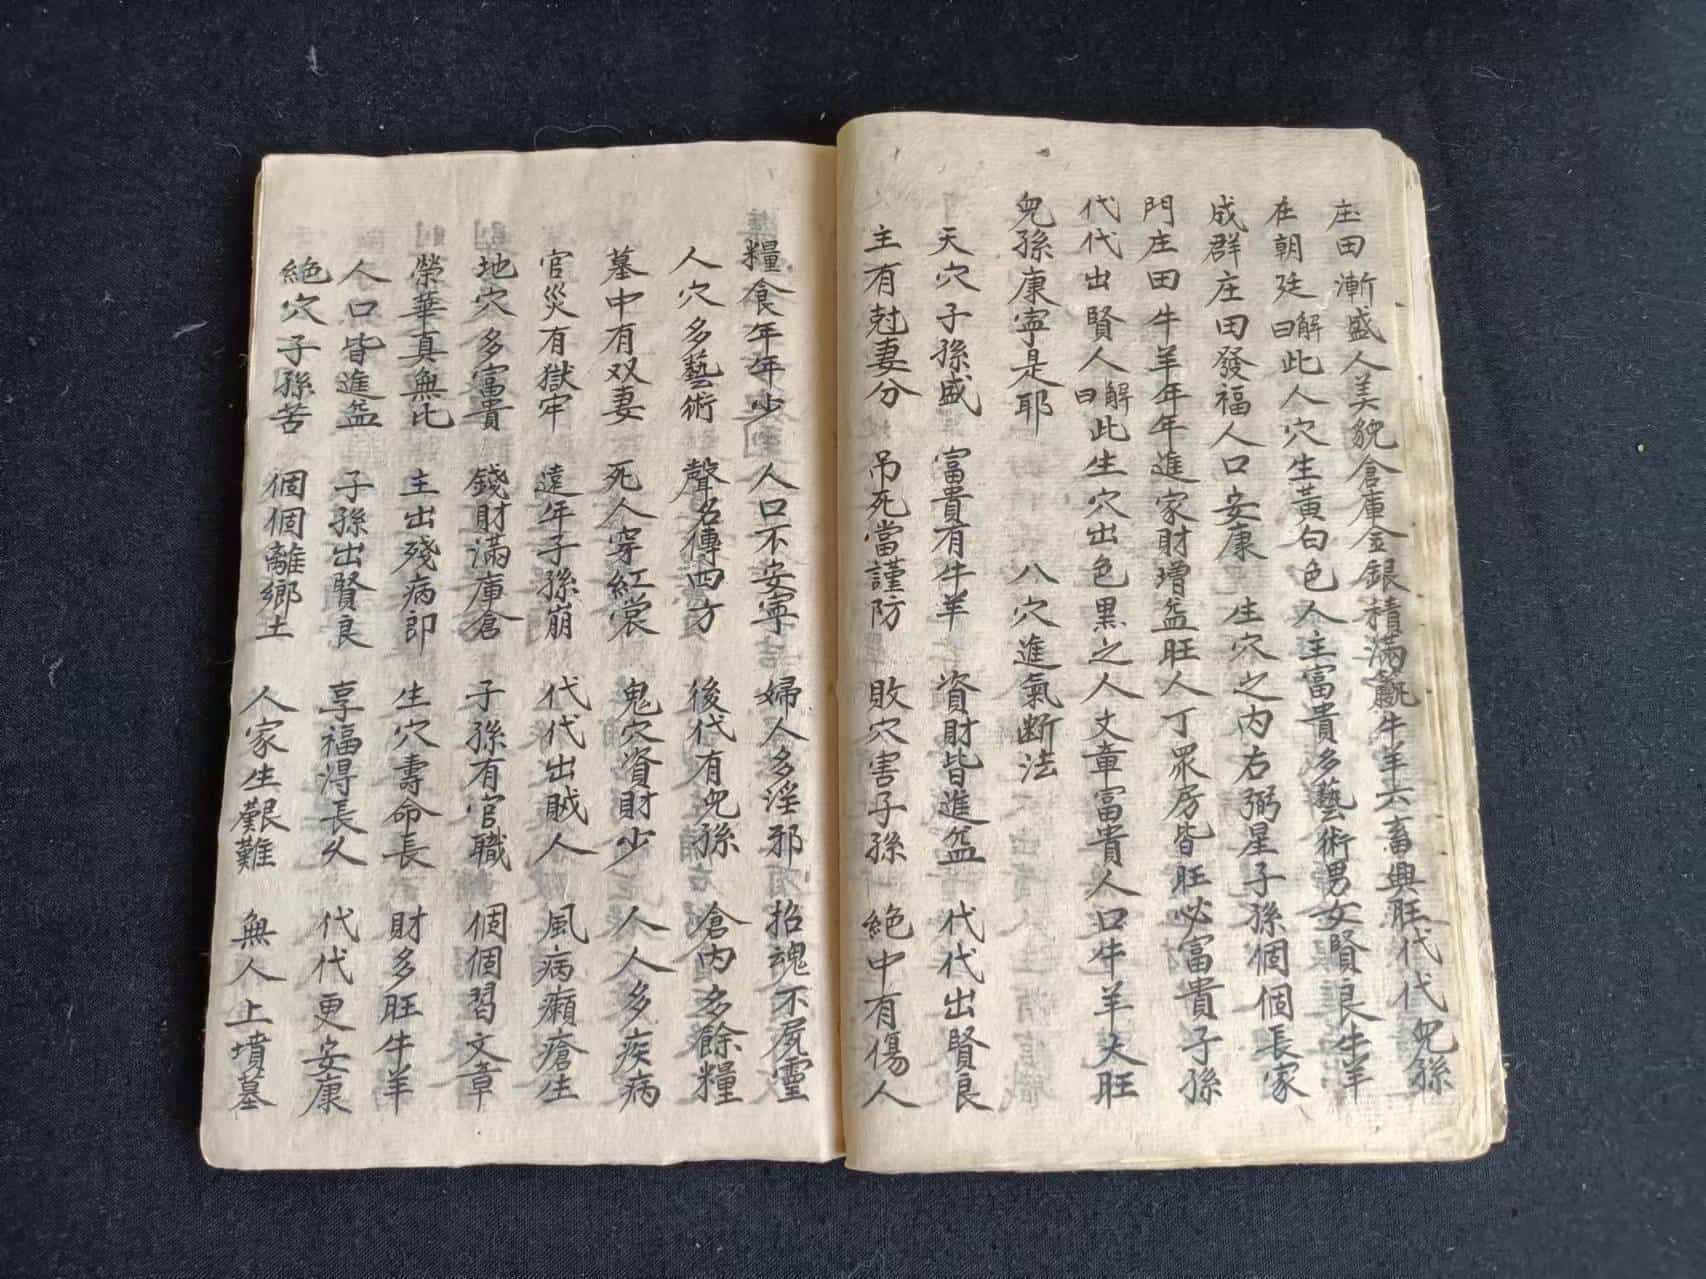 庄田漸盛人美貌倉庫金銀積滿 牛羊六畜興旺代代兒孫
在朝廷解曰此人穴生黃白色人主富貴多藝術男女賢良牛羊
成群庄田發福人口安康 生穴之內右弼星子孫個個長家
門庄田牛羊年年進家財增益旺人丁眾房皆旺必富貴子孫
代代出賢人解曰此生穴出色黑之人文章富貴人口牛羊大旺
兒孫康寧是耶 八穴進氣斷法
天穴子孫盛 富貴有牛羊 資財皆進益 代代出賢良
主有尅妻分 吊死當謹防 敗穴害子孫 絕中有傷人
糧食年年少 人口不安寧 婦人多淫邪 招魂不 靈
人穴多藝術 聲名傳四方 後代有兒孫 倉內多餘糧
墓中有双妻 死人穿紅裳 鬼穴資財少 人人多疾病
官災有獄牢 遠年子孫崩 代代出賊人 風病癩瘡生
地穴多富貴 錢財滿庫倉 子孫有官職 個個習文章
榮華真無比 主出殘病郎 生穴壽命長 財多旺牛羊
人口皆進益 子孫出賢良 享福得長久 代代更安康
絕穴子孫苦 個個離鄉土 人家生艱難 無人上墳墓